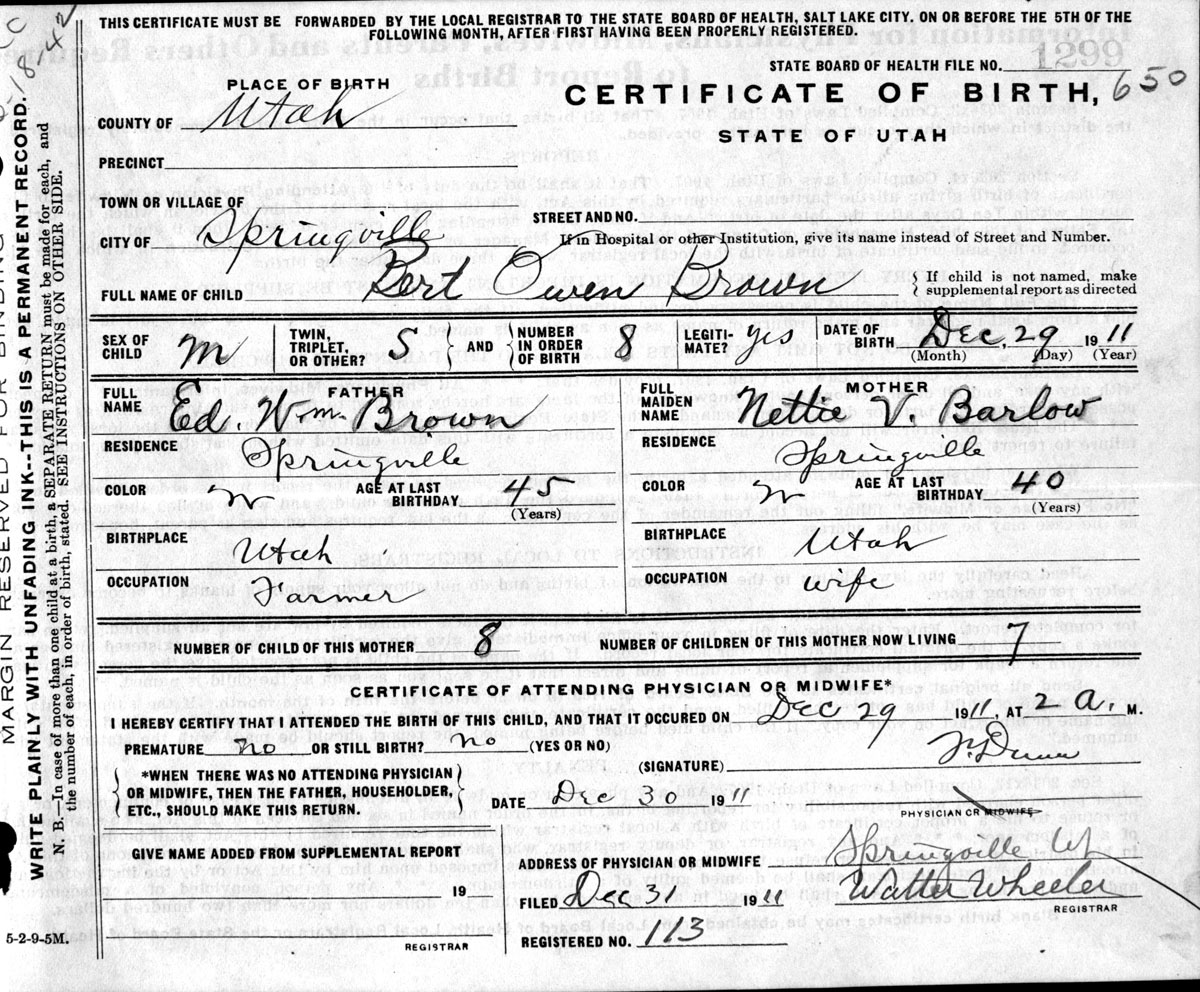 THIS CERTIFICATE MUST BE FORWARDED BY THE LOCAL REGISTRAR TO THE STATE BOARD OF HEALTH, SALT LAKE CITY. ON OR BEFORE THE 5TH OF THE
FOLLOWING MONTH, AFTER FIRST HAVING BEEN PROPERLY REGISTERED.
1299
STATE BOARD OF HEALTH FILE NO.
PLACE OF BIRTH
CERTIFICATE OF BIRTH, 650
COUNTY OF Utah
STATE OF UTAH
PRECINCT
TOWN OR VILLAGE OF
STREET AND NO.
CITY OF Springville
If in Hospital or other Institution, give its name instead of Street and Number.
FULL NAME OF CHILD Bert Owen Brown
{ If child is not named, make
supplemental report as directed
SEX OF CHILD M
TWIN, TRIPLET, OR OTHER? S
} AND { NUMBER IN ORDER OF BIRTH 8
LEGITIMATE? yes
DATE OF BIRTH Dec, 29 1911
(Month) (Day) (Year)
FATHER
FULL NAME Ed Wm. Brown
RESIDENCE Springville
COLOR W AGE AT LAST BIRTHDAY 45
(Years)
BIRTHPLACE Utah
OCCUPATION Farmer
MOTHER
FULL MAIDEN NAME Nettie V Barlow
RESIDENCE Springville
COLOR W AGE AT LAST BIRTHDAY 40
(Years)
BIRTHPLACE Utah
OCCUPATION wife
NUMBER OF CHILD OF THIS MOTHER 8 NUMBER OF CHILDREN OF THIS MOTHER NOW LIVING 7
CERTIFICATE OF ATTENDING PHYSICIAN OR MIDWIFE*
I HEREBY CERTIFY THAT I ATTENDED THE BIRTH OF THIS CHILD, AND THAT IT OCCURED ON Dec 29 1911, AT 2 a. M.
PREMATURE no OR STILL BIRTH? no (YES OR NO)
(SIGNATURE) Dunn
*WHEN THERE WAS NO ATTENDING PHYSICIAN
OR MIDWIFE, THEN THE FATHER, HOUSEHOLDER,
ETC., SHOULD MAKE THIS RETURN.
DATE Dec 30 1911
PHYSICIAN OR MIDWIFE
GIVE NAME ADDED FROM SUPPLEMENTAL REPORT
19
REGISTRAR
ADDRESS OF PHYSICIAN OR MIDWIFE Springville Ut
FILED Dec 31 1911 Walter Wheeler
REGISTRAR
REGISTERED NO. 113
5-2-9-5M.
MARGIN RESERVED FOR BINDING
WRITE PLAINLY WITH UNFADING INK--THIS IS A PERMANENT RECORD.
N. B.—In case of more than one child at a birth, a SEPARATE RETURN must be made for each, and
the number of each, in order of birth, stated. SEE INSTRUCTIONS ON OTHER SIDE.